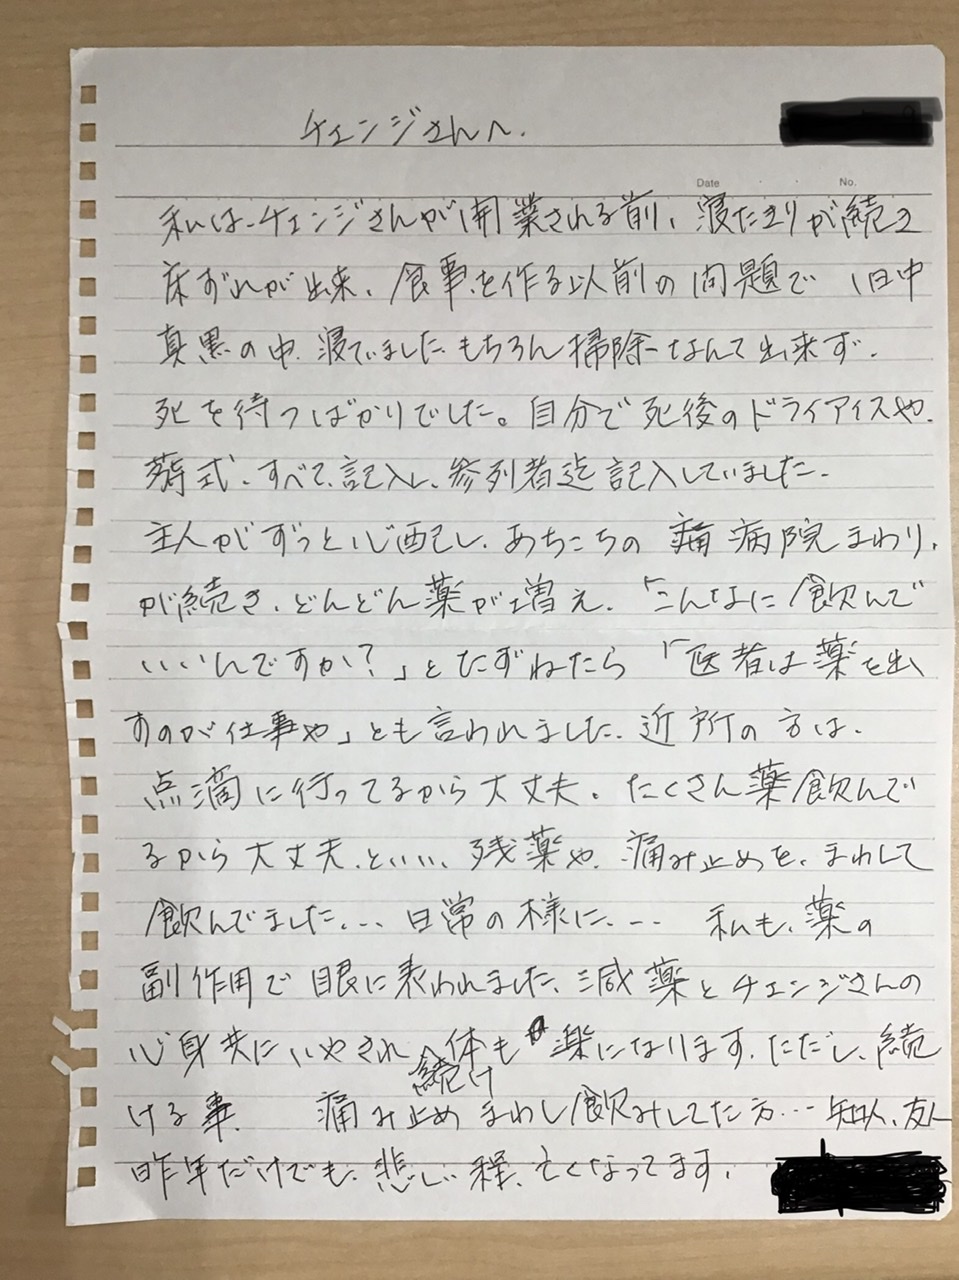 チェンジさんへ.
Date ・ ・ No.
私は、チェンジさんが開業される前、寝たきりが続き
床ずれが出来、食事を作る以前の問題で 1日中
真黒の中、寝ていました。もちろん掃除なんて出来ず.
死を待つばかりでした。自分で死後のドライアイスや.
葬式、すべて、記入し、参列者迄記入していました.
主人がずっと心配し、あちこちの 病院まわり、
が続き、どんどん薬が増え、「こんなに飲んで
いいんですか?」とたずねたら「医者は薬を出
すのが仕事や」とも言われました。近所の方は、
点滴に行ってるから大丈夫。たくさん薬飲んで
るから大丈夫、といい、残薬や、痛み止めを、まわして
飲んでました、… 日常の様に、… 私も、薬の
副作用で眼に表われました、減薬とチェンジさんの
心身共にいやされ、体も 楽になります。ただし、続
続け
ける事 痛み止めまわし飲みしてた方… 知人、友人
昨年だけでも、悲しい程、亡くなってます.